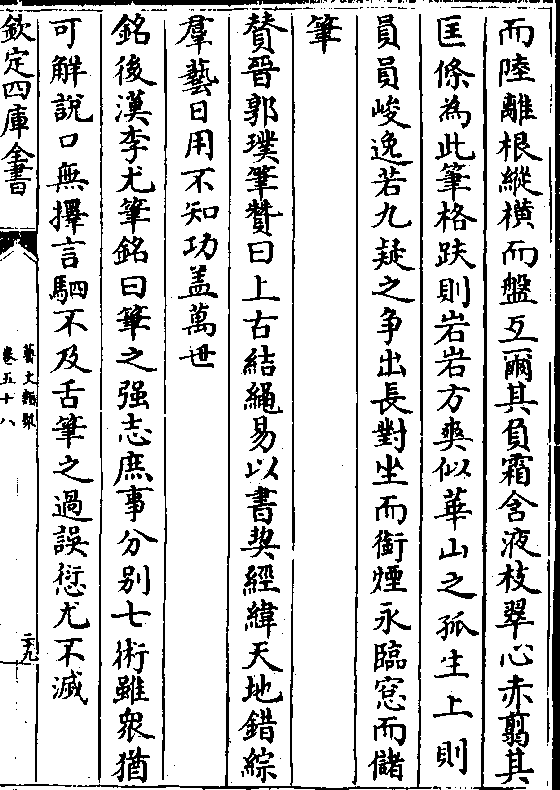 而陸離根縱横而盤互爾其負霜含液枝翠心赤翦其
匡條為此筆格趺則岩岩方爽似華山之孤生上則
員員峻逸若九疑之爭出長對坐而銜煙永臨窓而儲
筆
賛晉郭璞筆賛曰上古結繩易以書契經緯天地錯綜
羣藝日用不知功盖萬世
銘後漢李尤筆銘曰筆之强志庶事分别七術雖衆猶
可解說口無擇言駟不及舌筆之過誤愆尤不滅
欽定四庫全書
藝文類聚
卷五十八
二九